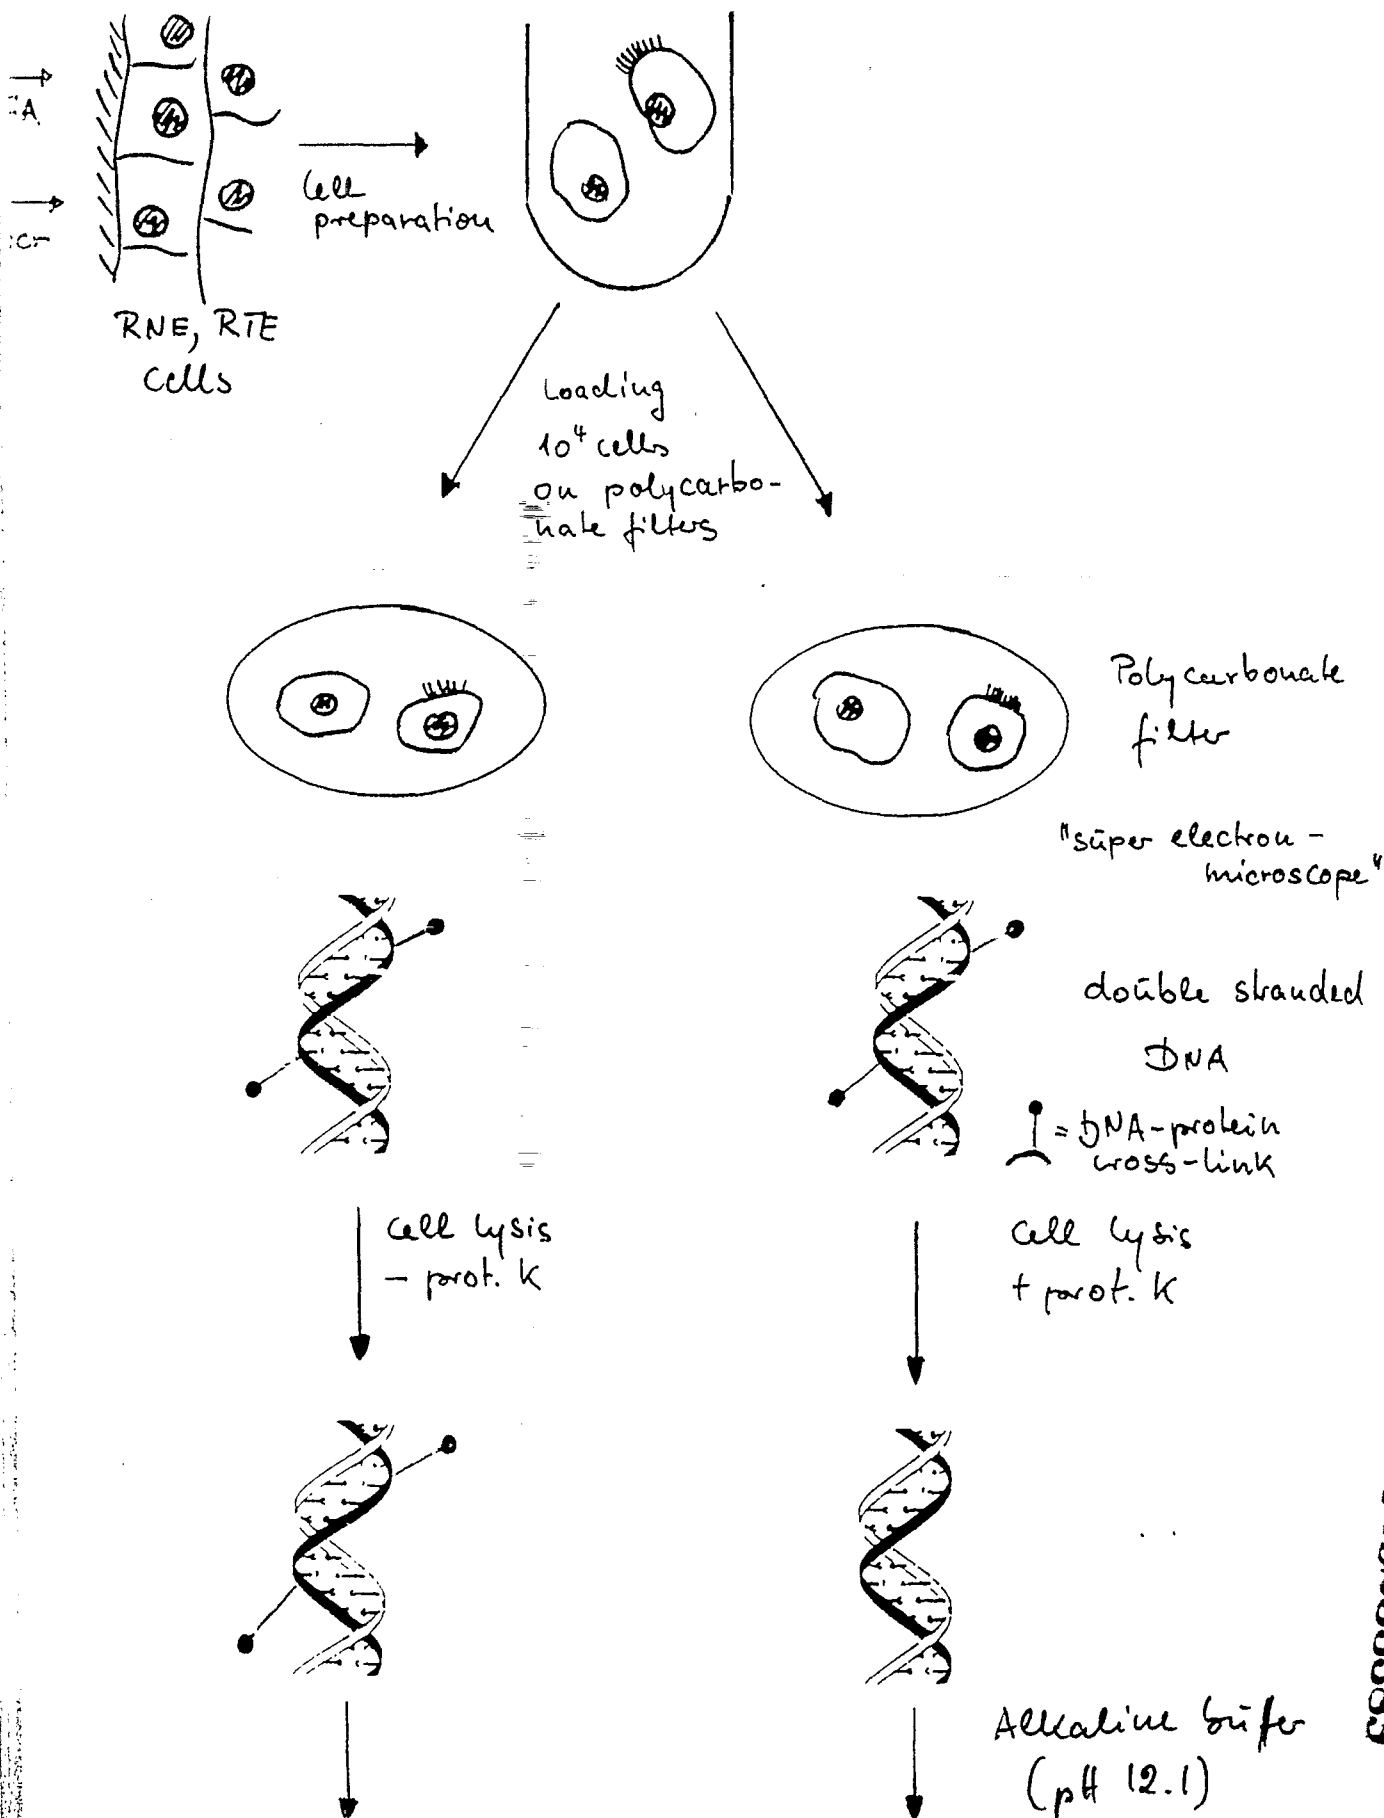 RNE, RTE
Cells
Cell
preparation
Loading
10⁴ cells
on polycarbo-
nate filters
Polycarbonate
filter
"super electron-
microscope"
double stranded
DNA
= DNA-protein
cross-link
Cell lysis
- prot. K
Cell lysis
+ prot. K
Alkaline buffer
(pH 12.1)